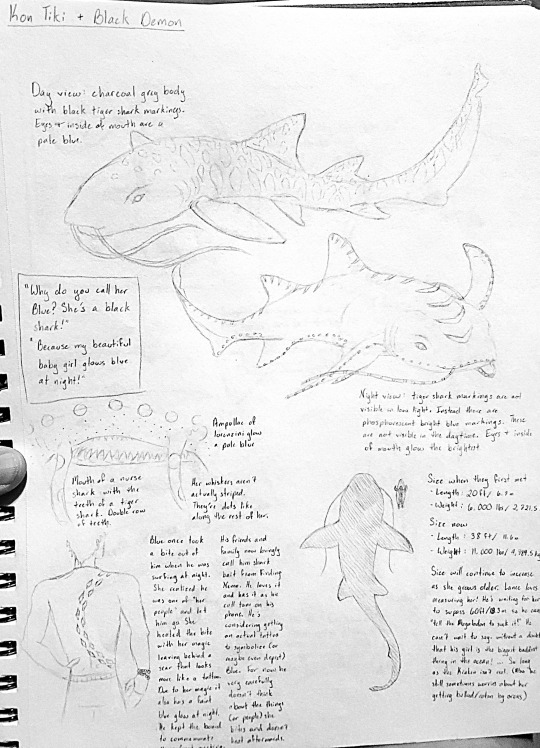 Kon Tiki + Black Demon
Day view: charcoal grey body
with black tiger shark markings.
Eyes + inside of mouth are a
pale blue.
"Why do you call her
Blue? She's a black
shark!"
"Because my beautiful
baby girl glows blue
at night!"
Night view: tiger shark markings are not
visible in low light. Instead there are
phosphorescent bright blue markings. These
are not visible in the daytime. Eyes + inside
of mouth glow the brightest
Ampullae of
lorenzini glow
a pale blue
Mouth of a nurse
shark with the
teeth of a tiger
shark. Double row
of teeth.
Her whiskers aren't
actually striped.
They're dots like
along the rest of her.
Size when they first met
- Length: 20 ft/
- Weight: 6,000 lbs/
Size now
- Length: 38 ft/ 11.6m
- Weight: 11,000 lbs/
Size will continue to increase
as she grows older. Lance loves
measuring her. He's waiting for her
to surpass 60ft/ so he can
"tell the Megalodon to suck it!" He
can't wait to say without a doubt
that his girl is the biggest baddest
thing in the ocean! ... So long
as the Kraken isn't real. (Also he
still sometimes worries about her
getting killed/eaten by orcas)
Blue once took
a bite out of
him when he was
surfing at night.
She realized he
was one of "her
people" and let
him go. She
healed the bite
with her magic
leaving behind a
scar that looks
more like a tattoo.
Due to her magic it
also has a faint
blue glow at night.
He kept the board
to commemorate
His friends and
family now lovingly
call him shark
bait from Finding
Nemo. He loves it
and has it as he
call tone on his
phone. He's
considering getting
an actual tattoo
to symbolize (or
maybe even depict)
Blue. For now he
very carefully
doesn't think
about the things
(or people) she
bites and doesn't
heal afterwards.